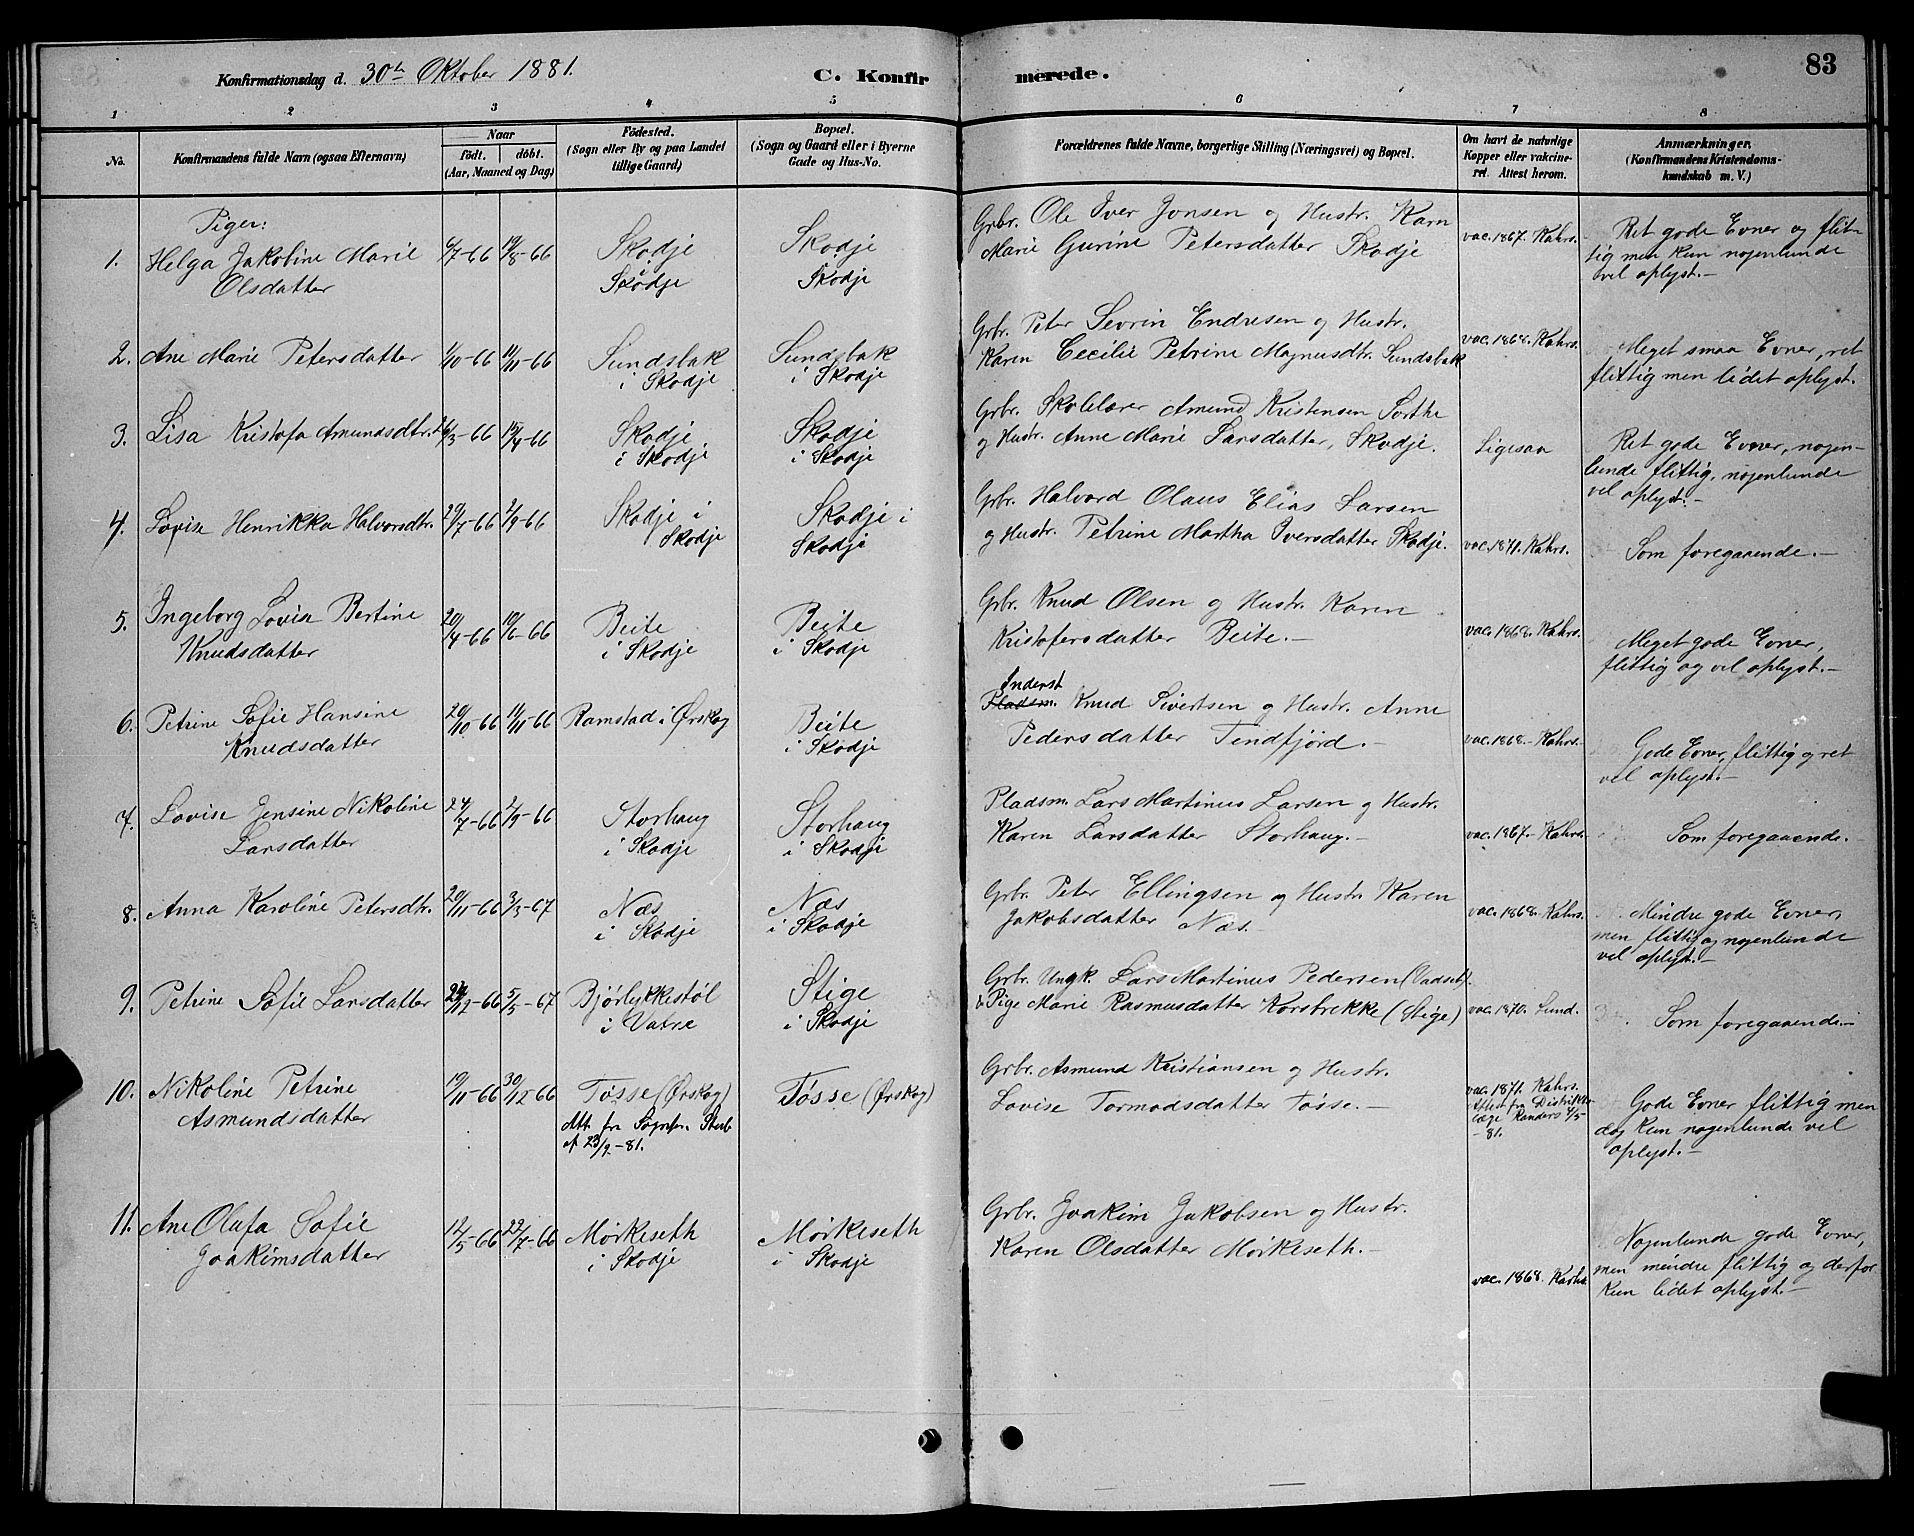 Konfirmationsdag d. 30th Oktober 1881.
C. Konfirmerede.
83
1 2 3 4 5 6 7 8
No.
Konfirmandens fulde Navn (ogsaa Efternavn)
Naar
født. døbt.
(Aar, Maaned og Dag)
Fødested.
(Sogn eller By og paa Landet
tillige Gaard)
Bopæl.
(Sogn og Gaard eller i Byerne
Gade og Hus-No.
Forældrenes fulde Navne, borgerlige Stilling (Næringsvei) og Bopæl.
Om havt de naturlige
Kopper eller vakcine-
ret. Attest herom.
Anmærkninger.
(Konfirmandens Kristendoms-
kundskab m. V.)
Piger:
1. Helga Jakobine Marie
Olsdatter
6/7-66 19/8-66
Skodje
Skodje
Skodje
Skodje
Grbr. Ole Iver Jonsen og Hustr. Karn
Marie Gurine Petersdatter Skodje
vac. 1867. Kahrs.
Ret gode Evner og flit-
tig men kun nogenlunde
vel oplyst.-
2. Ane Marie Petersdatter
1/10-66 11/11-66
Sundsbak
i Skodje
Sundsbak
i Skodje
Grbr. Peter Sevrin Endresen og Hustr.
Karen Cecilie Petrine Magnusdtr. Sundsbak
vac. 1868. Kahrs.
Meget smaa Evner, ret
flittig men lidet oplyst.
3. Lisa Kristofa Amundsdtr.
/3-66 15/4-66
Skodje
i Skodje
Skodje
i Skodje
Grbr. Skolelærer Amund Kristensen Sorthe
og Hustr. Anne Marie Larsdatter, Skodje.
Ligesaa
Ret gode Evner, nogen-
lunde flittig, nogenlunde
vel oplyst.-
4. Lovise Henrikka Halvorsdtr.
29/7-66 2/9-66
Skodje i
Skodje
Skodje i
Skodje
Grbr. Halvord Olaus Elias Larsen
og Hustr. Petrine Martha Iversdatter Skodje.
vac. 1871. Kahrs.
Som foregaaende.-
5. Ingeborg Lovise Bertine
Knudsdatter
20/4-66 10/6-66
Beite
i Skodje
Beite
i Skodje
Grbr. Knud Olsen og Hustr. Karen
Kristofersdatter Beite.-
vac. 1868. Kahrs.
Meget gode Evner,
flittig og vel oplyst.-
6. Petrine Sofie Hansine
Knudsdatter
20/10-66 11/11-66
Ramstad i Ørskog
Beite
i Skodje
Inderst
Pladsm. Knud Sivertsen og Hustr. Anne
Pedersdatter Tendfjord.-
vac. 1868.- Kahrs.
Gode Evner, flittig og ret
vel oplyst.-
7. Lovise Jensine Nikoline
Larsdatter
24/7-66 2/9-66
Storhaug
i Skodje
Storhaug
i Skodje
Pladsm. Lars Martinus Larsen og Hustr.
Karen Larsdatter Storhaug.-
vac. 1867.- Kahrs.
Som foregaaende.-
8. Anna Karoline Petersdtr.
20/11-66 3/3-67
Næs
i Skodje
Næs
i Skodje
Grbr. Peter Ellingsen og Hustr. Karen
Jakobsdatter Næs.-
vac. 1868. Kahrs.
Mindre gode Evner,
men flittig og nogenlunde
vel oplyst.-
9. Petrine Sofie Larsdatter
/12-66 5/5-67
Bjørlykkestøl
i Vatne
Stige
i Skodje
Grbr. Ungk. Lars Martinus Pedersen (Vadset).
& Pige Marie Rasmusdatter Korsbrekke (Stige)
vac. 1870. Lund.
Som foregaaende.-
10. Nikoline Petrine
Asmundsdatter
19/11-66 30/12-66
Tøsse (Ørskog)
Att. fra Sognepr. Stub
af 23/9-81.
Tøsse (Ørskog)
Grbr. Asmund Kristiansen og Hustr.
Lovise Tormodsdatter Tøsse.-
vac. 1871. Kahrs.
Attest fra Distrikts-
læge Randers 4/5
-81.
Gode Evner flittig men
dog kun nogenlunde vel
oplyst.-
11. Ane Olufa Sofie
Joakimsdatter
12/5-66 22/7-66
Mørkeseth
i Skodje
Mørkeseth
i Skodje
Grbr. Joakim Jakobsen og Hustr.
Karen Olsdatter Mørkeseth.-
vac. 1868. Karhs.
Nogenlunde gode Evner,
men mindre flittig og derfor
kun lidet oplyst.-